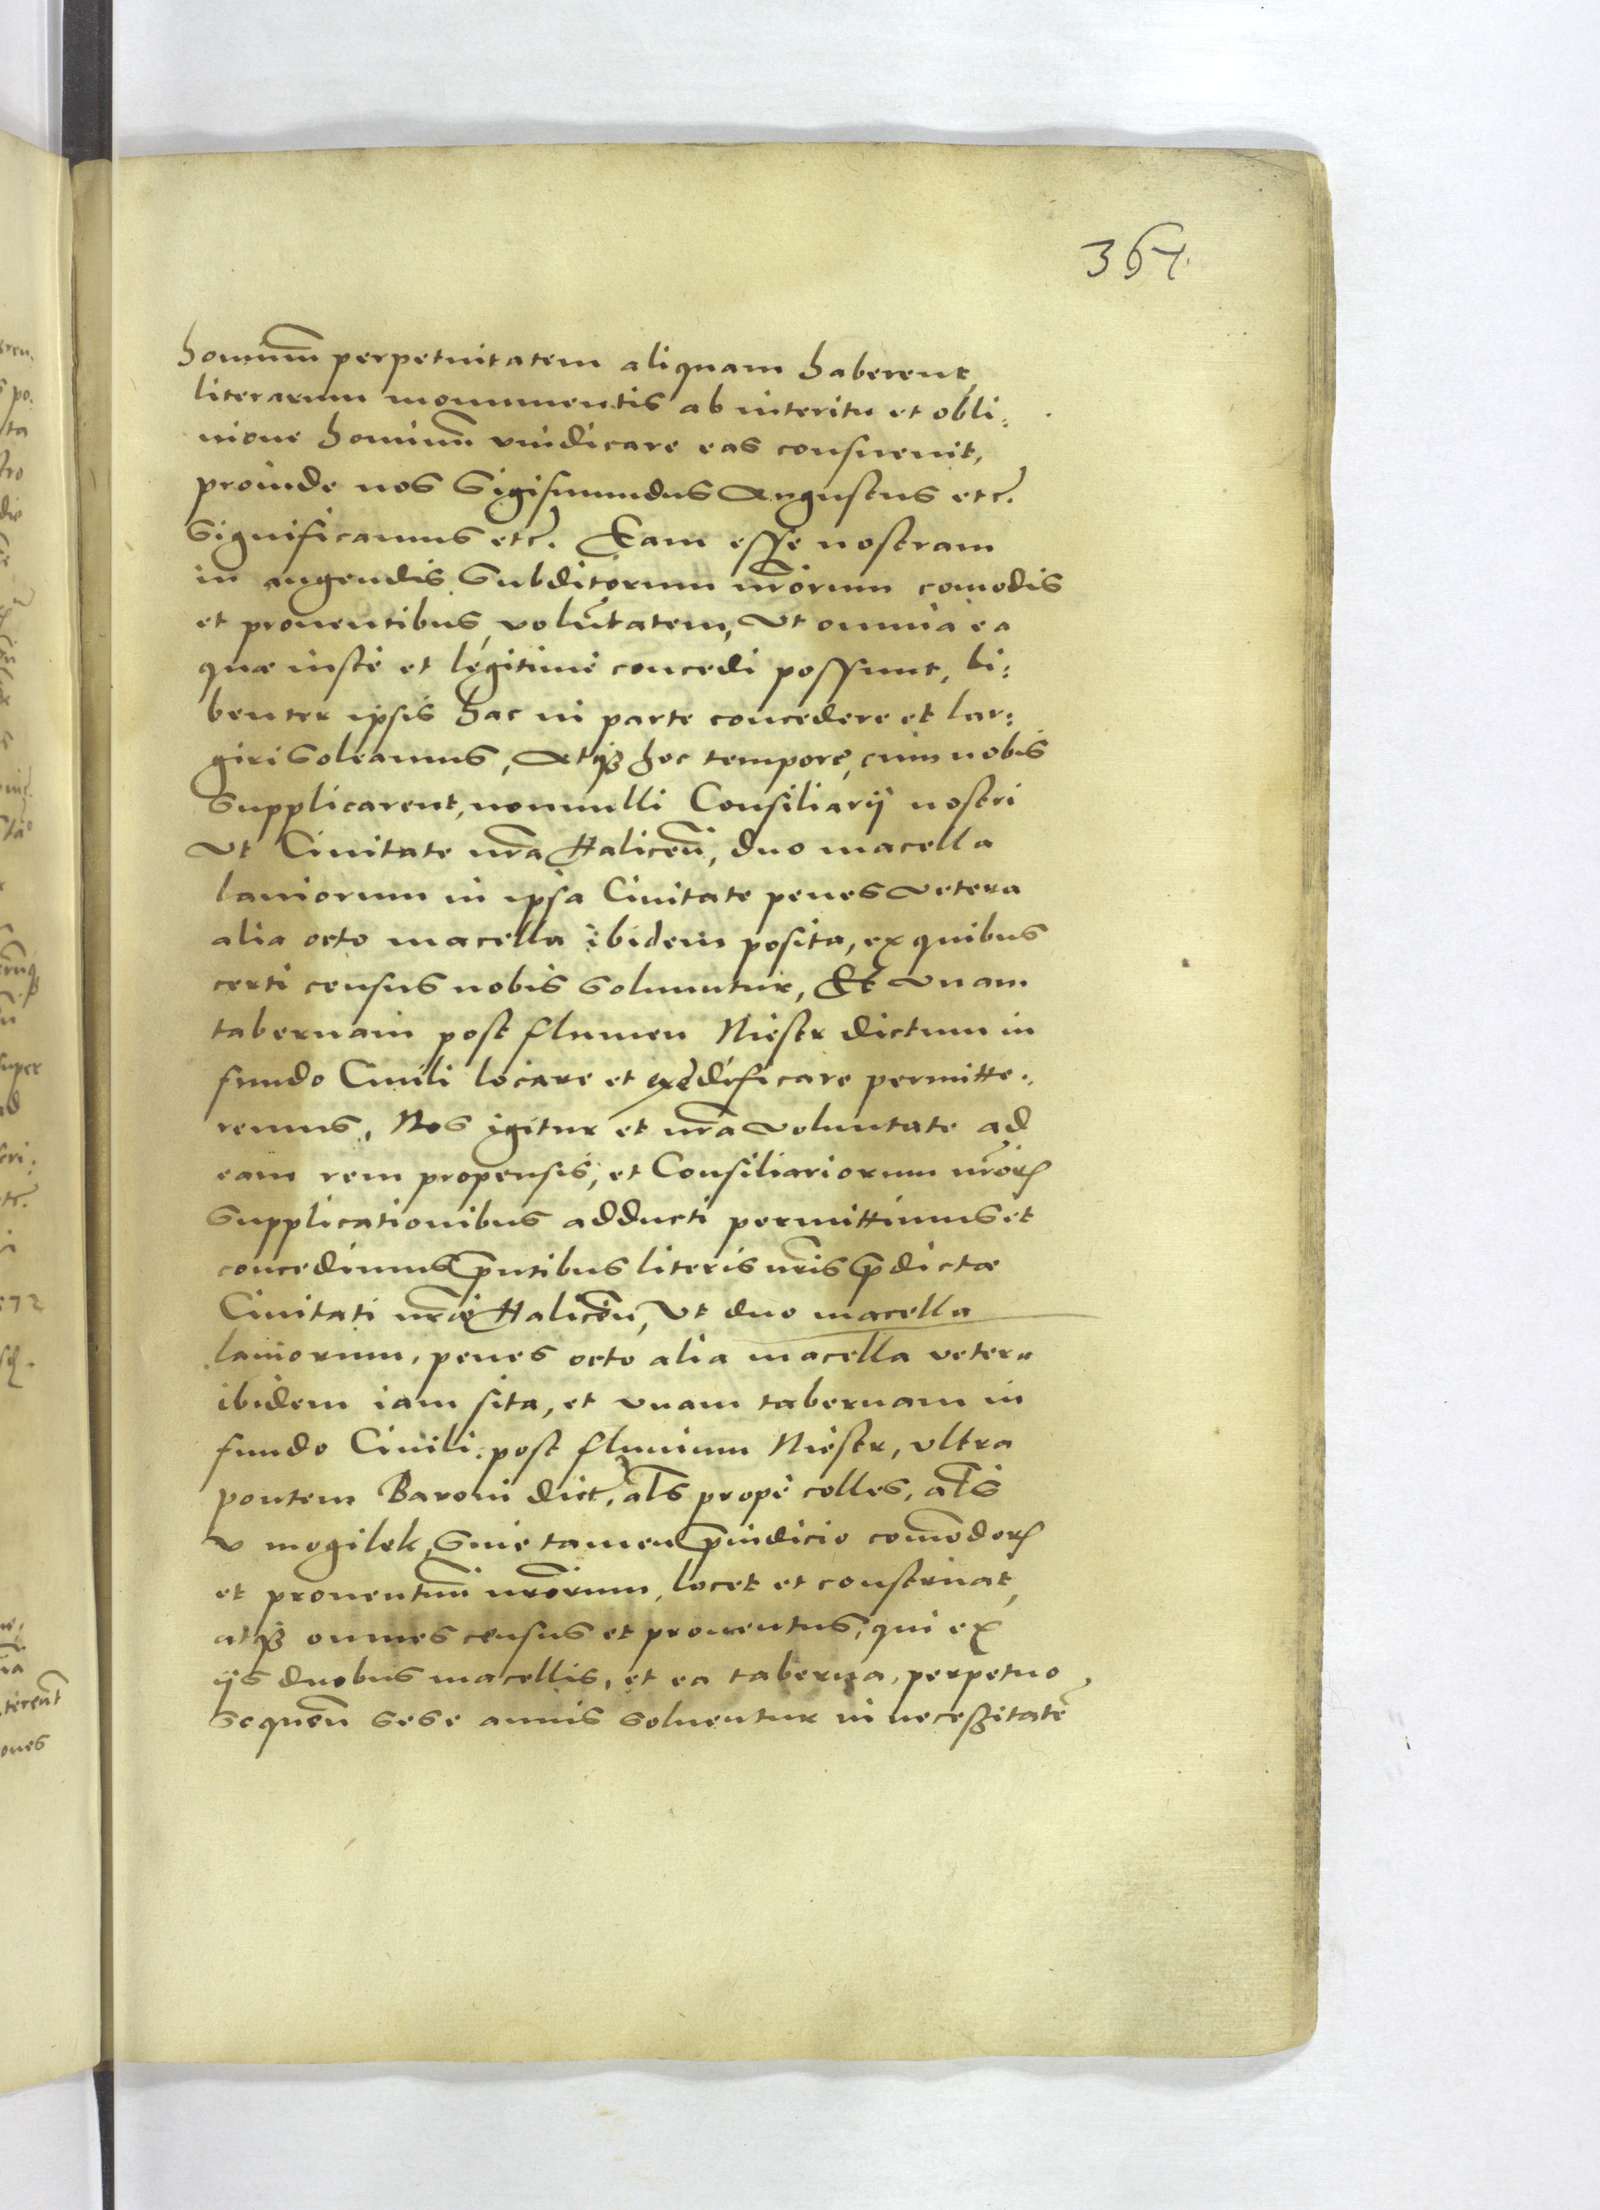 364.
hominum perpetuitatem aliquam haberent,
literarum monumentis ab interitu et obli:
uione hominum vindicare eas consueuit,
proinde nos Sigismundus Augustus etc.
Significamus etc. Eam esse nostram
in augendis Subditorum nrorum comodis
et prouentibus voluntatem, Ut omnia ea
quæ iuste et legitime concedi possunt, li:
benter ipsis hac in parte concedere et lar:
giri soleamus, Atqz hoc tempore, cum nobis
Supplicarent, nonnulli Consiliarij nostri
Ut Ciuitate nra Halicen, duo macella
laniorum in ipsa Ciuitate penes vetera
alia octo macella ibidem posita, ex quibus
certi census nobis soluuntur, Et vnam
tabernam post flumen Niestr dictum in
fundo Ciuili locare et exedificare permitte:
remus, Nos igitur et nra voluntate ad
eam rem propensis, et Consiliariorum nrorum
Supplicationibus adducti permittimus et
concedimus pntibus literis nris prædictæ
Ciuitati nræ Halicen, Ut duo macella
laniorum, penes octo alia macella vetera
ibidem iam sita, et vnam tabernam in
fundo Ciuili post fluuium Niestr, vltra
pontem Baroni dict, als prope colles, als
v mogilek, Sine tamen præiudicio comodorum
et prouentuum nrorum, locet et conseruat,
atqz omnes census et prouentus, qui ex
ijs duobus macellis, et ea taberna, perpetuo
sequen sese annis soluentur in necessitatem